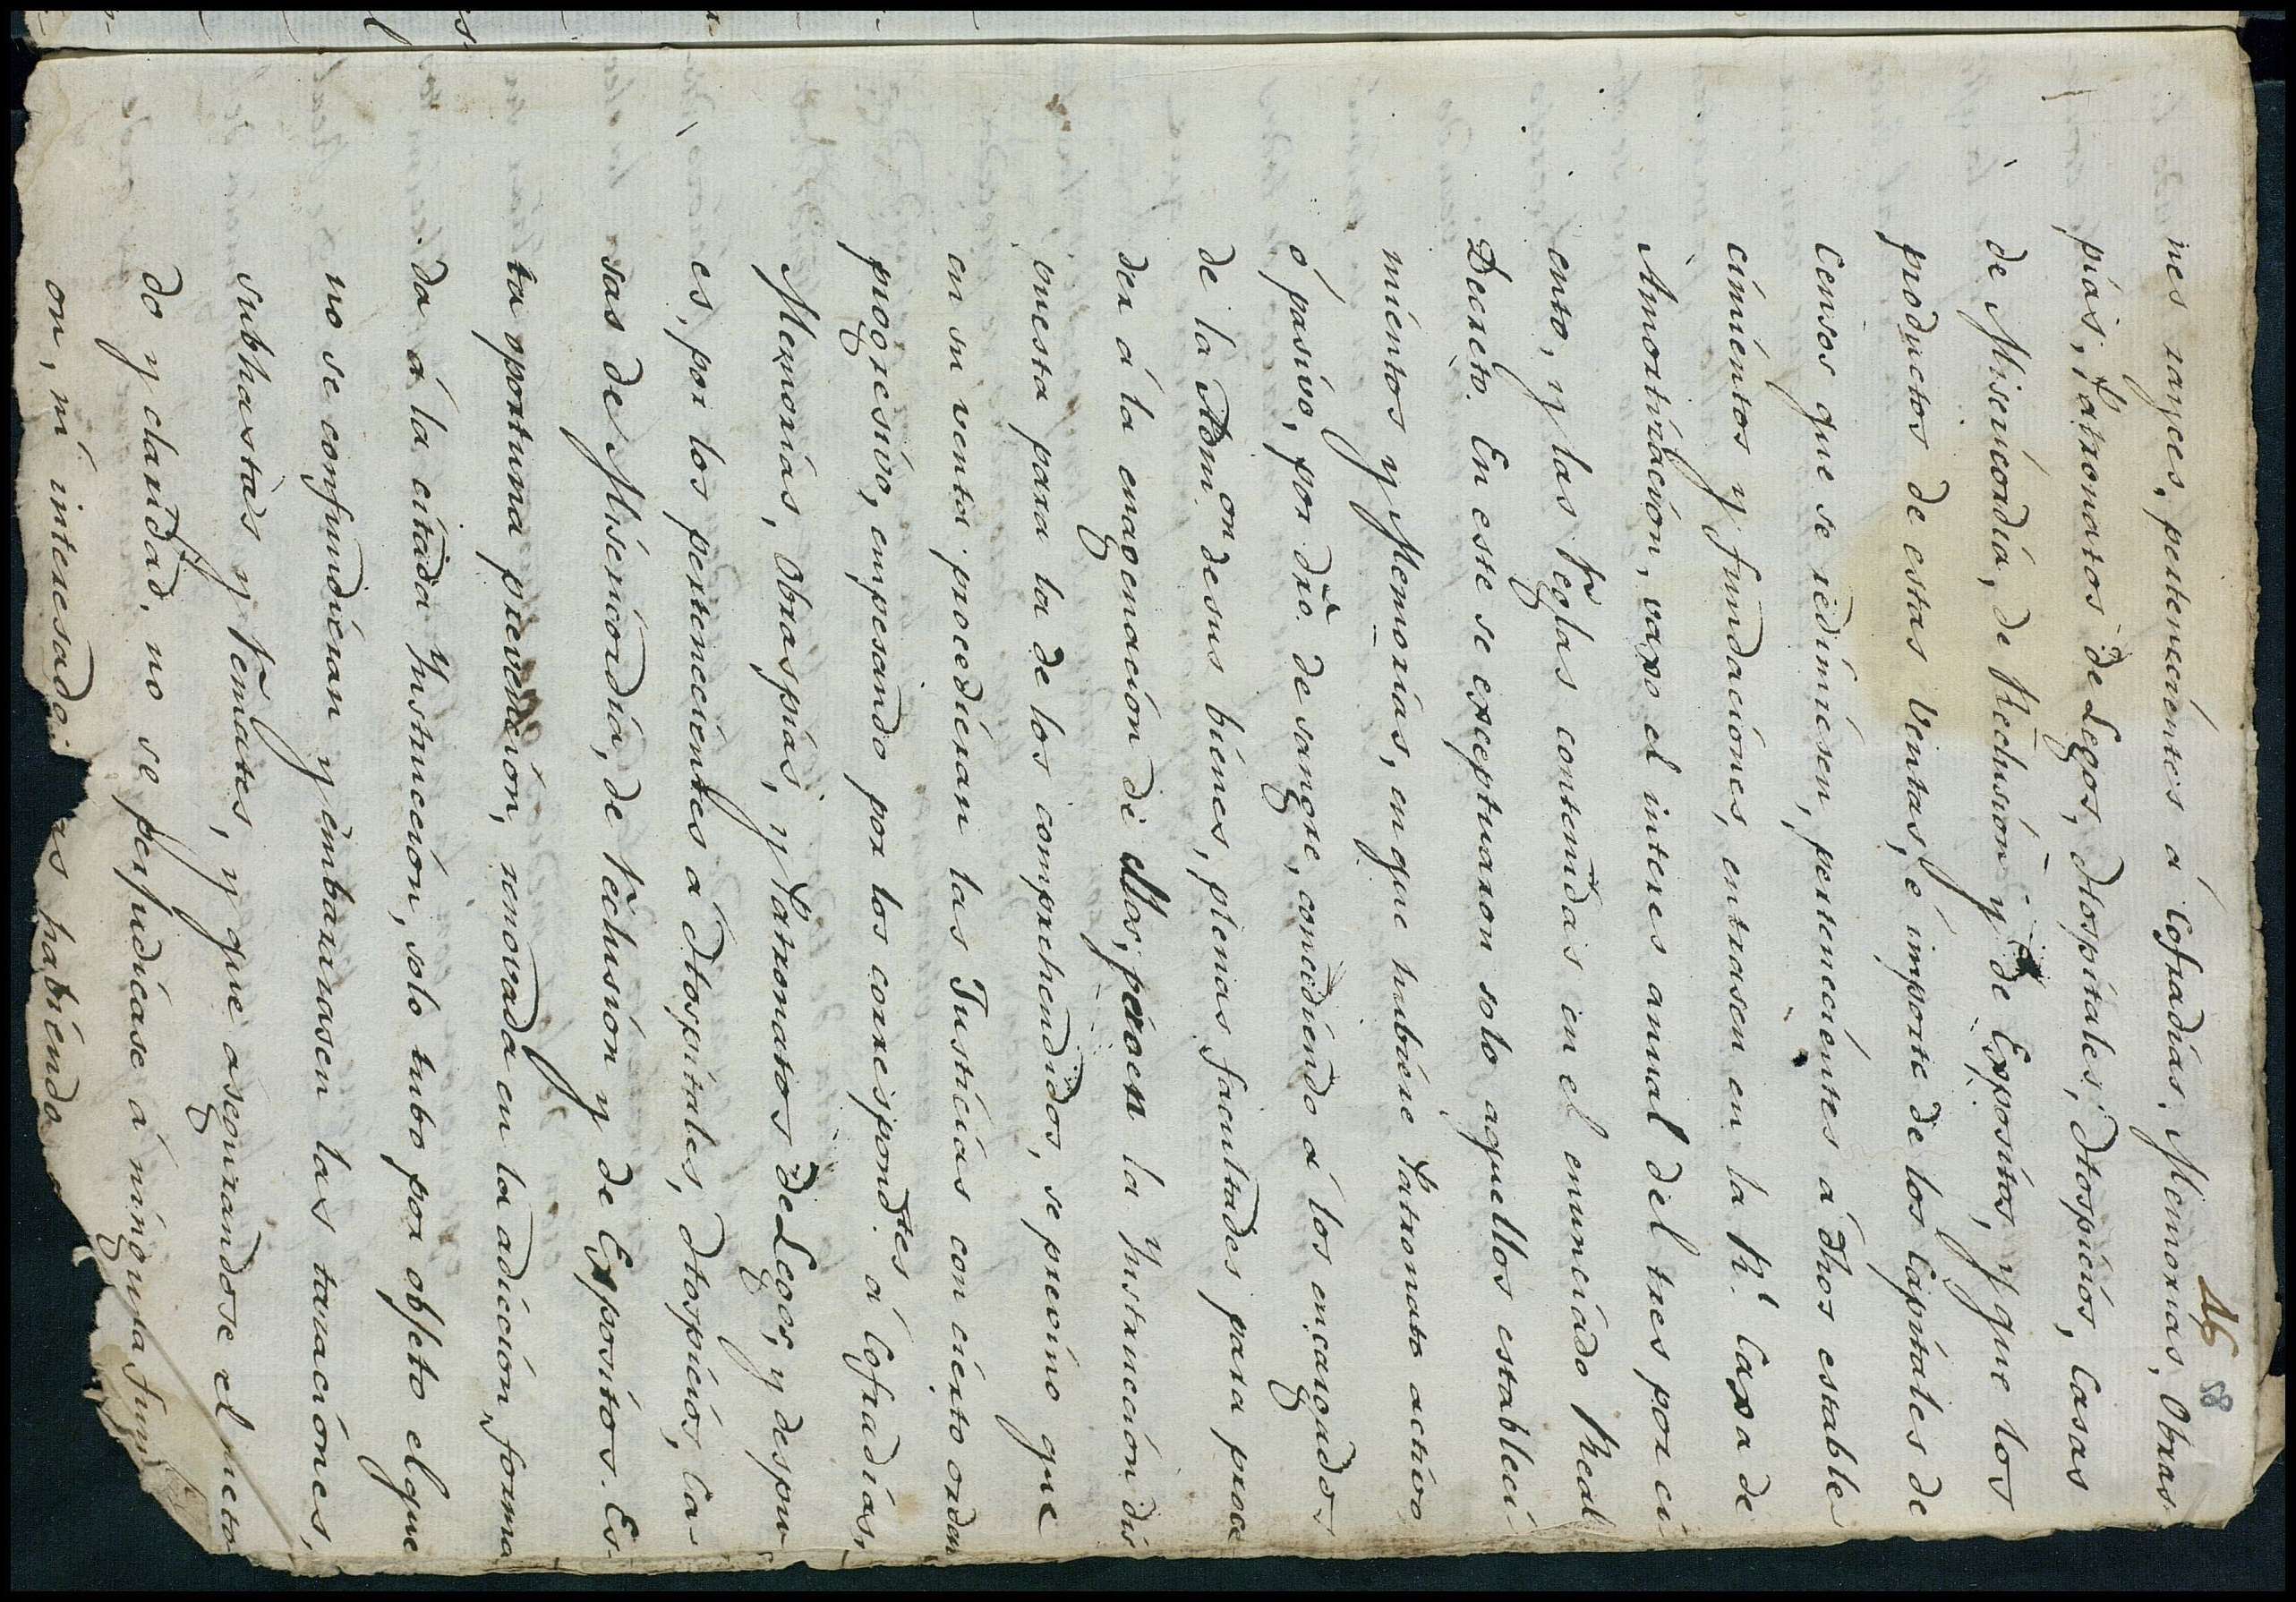 45 58
nes rayces, pertenecientes á Cofradias, Memorias, Obras
pias, Patronatos de Legos, Hospitales, Hospicios, Casas
de Misericordia, de Reclusion y de Expositos, y que los
productos de estas Ventas, é importe de los Capitales de
Censos que se redimiesen, pertenecientes a dhos estable
cimientos y fundaciones, entrasen en la Rl. Caxa de
Amortizacion, vaxo el interes annual del tres por ci
ento, y las Reglas contenidas en el enunciado Real
Decreto. En este se exceptuaron solo aquellos estableci
mientos y Memorias, en que hubiere Patronato activo
ó pasivo, por dro. de sangre, concediendo a los encargados
de la Admon. de sus bienes, plenas facultades para proce
der á la enagenacion de ellos, pero en la Ynstruccion dis
puesta para la de los comprehendidos, se previno que
en su venta procedieran las Justicias con cierto orden
progresivo, empesando por los correspondtes. a Cofradias,
Memorias, Obraspias, y Patronatos de Legos, y despu
es, por los pertenecientes á Hospitales, Hospicios, Ca-
sas de Misericordia, de Reclusion y de Expositos. Es-
ta oportuna prevencion, renovada en la adiccion forma
da á la citada Ynstruccion, solo tubo por objeto el que
no se confundieran y embarasasen las taraciones,
subhastas y Remates, y que asegurandose el meto
do y claridad, no se perjudicase á ninguna Fun
on, ni interesado as habiendo